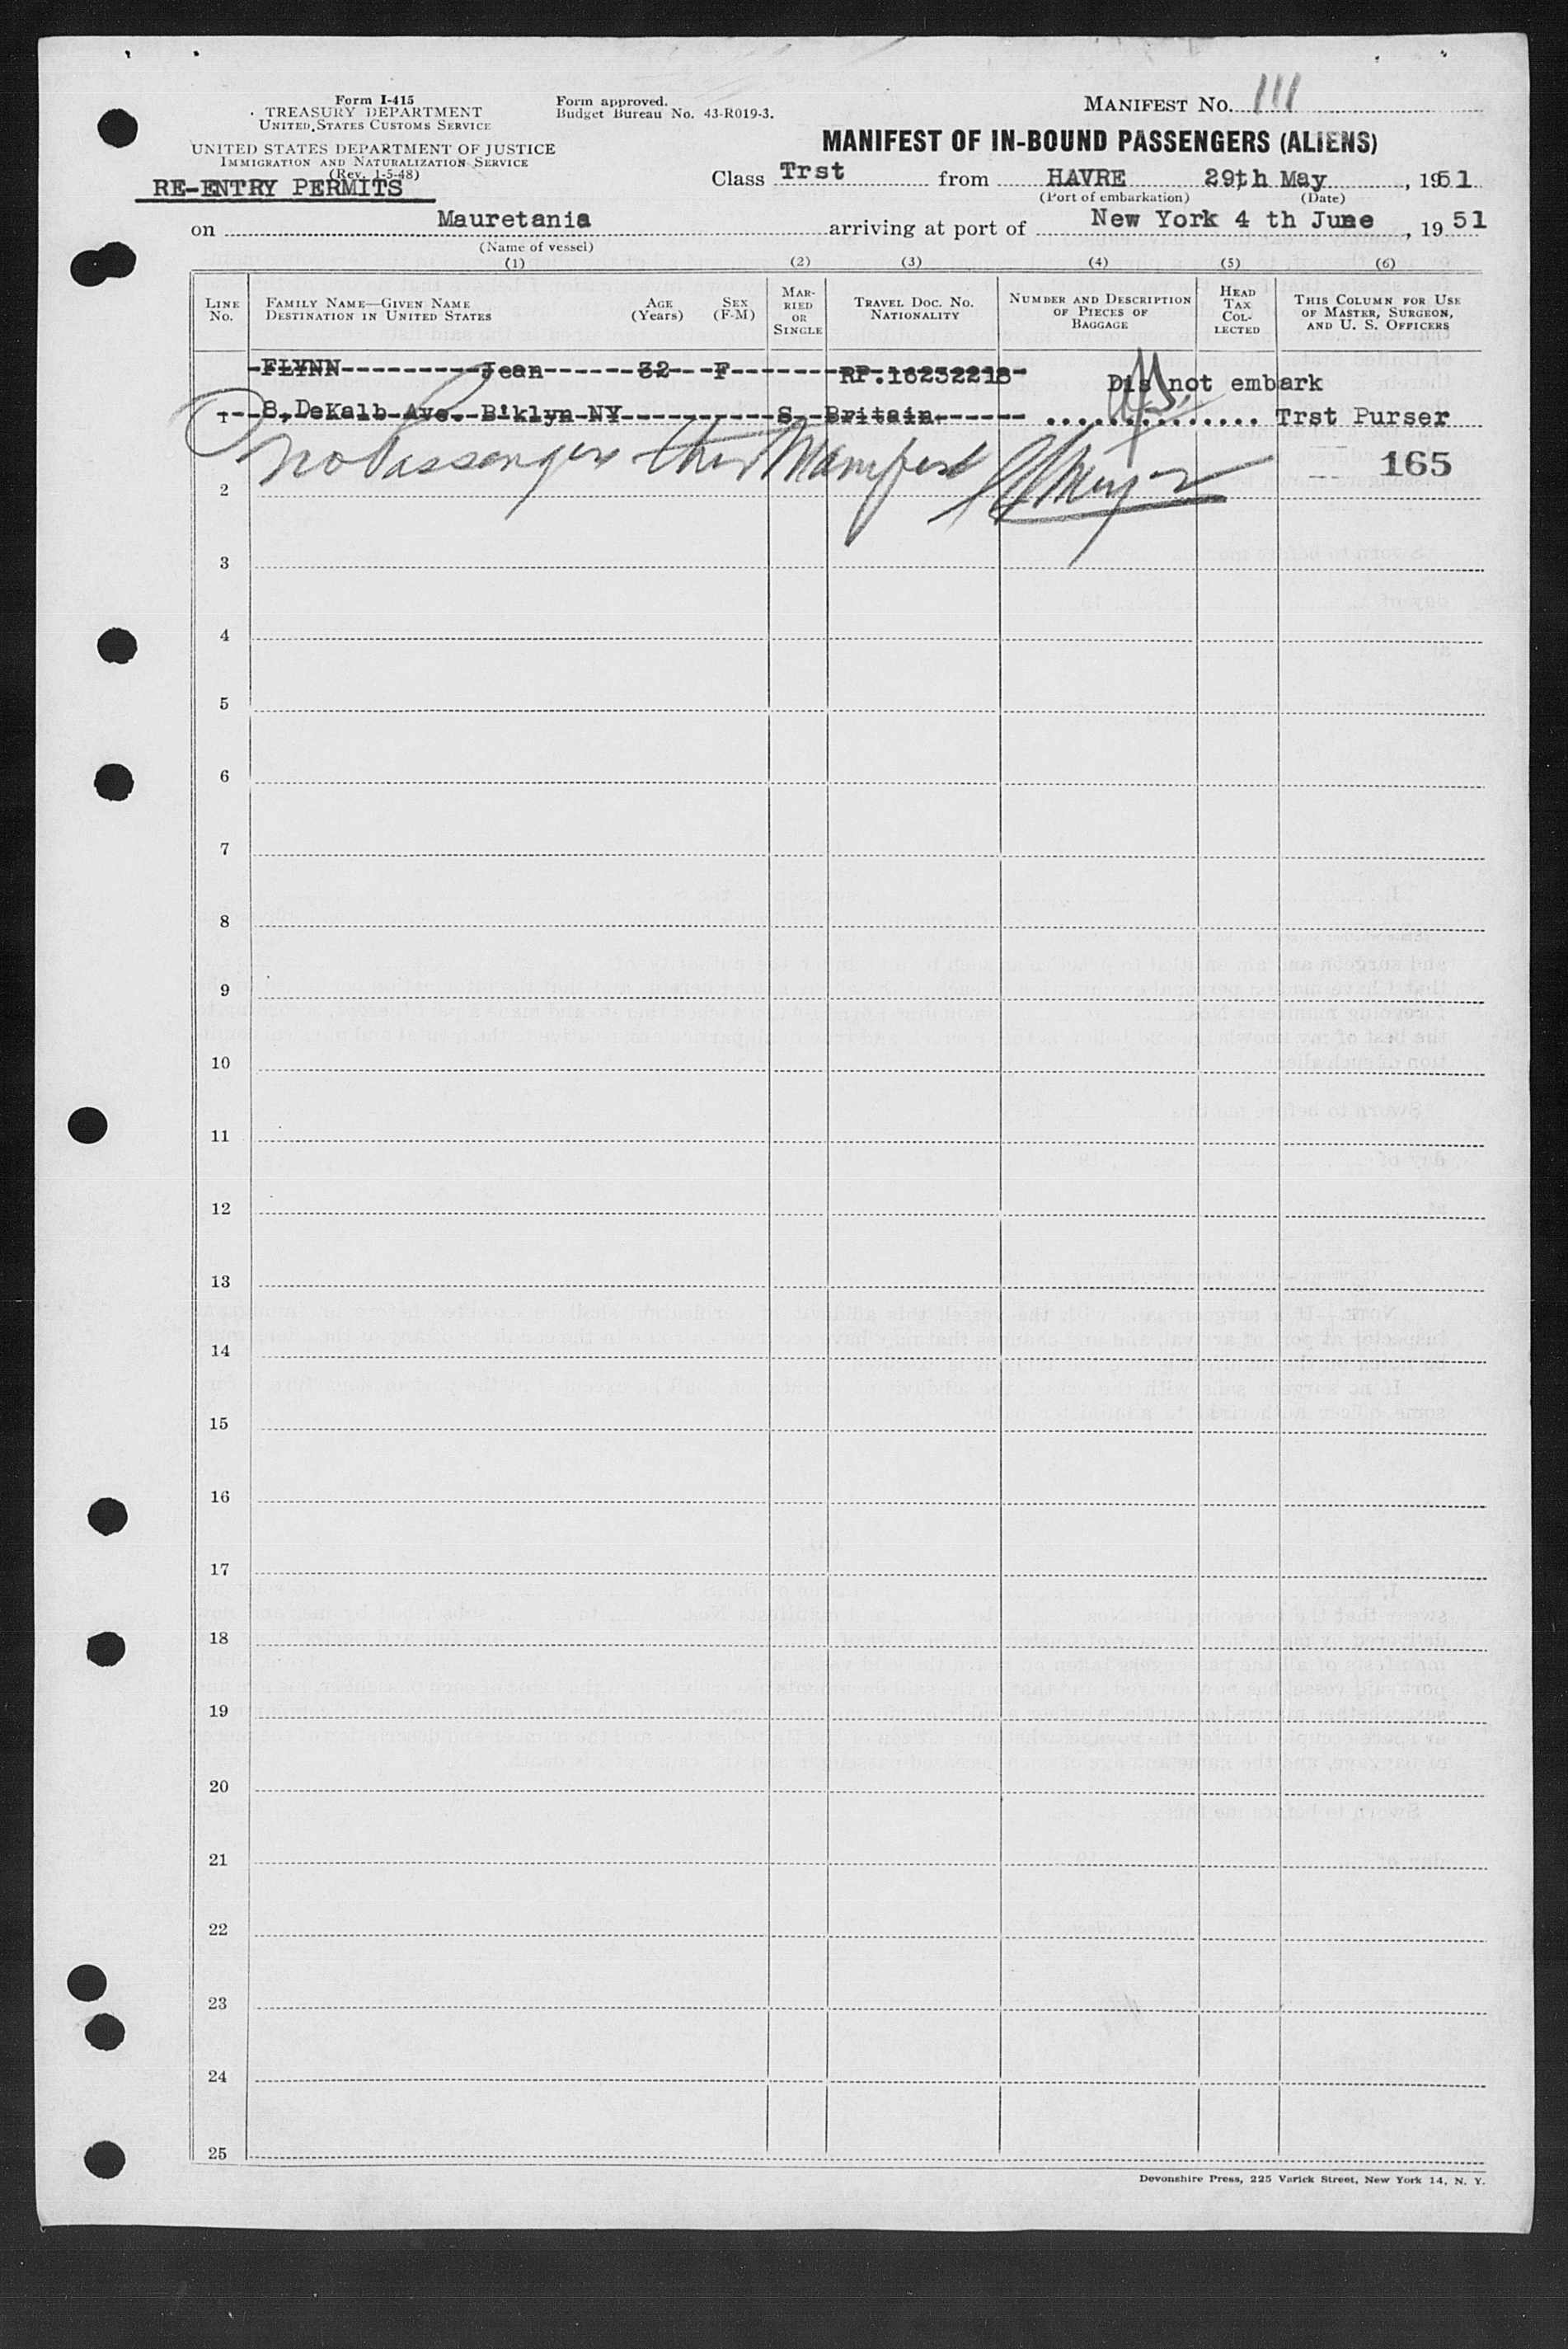 Form I-415
TREASURY DEPARTMENT
UNITED STATES CUSTOMS SERVICE
UNITED STATES DEPARTMENT OF JUSTICE
IMMIGRATION AND NATURALIZATION SERVICE
(Rev. 1-5-48)
RE-ENTRY PERMITS
Form approved.
Budget Bureau No. 43-R019-3.
MANIFEST NO. 111
MANIFEST OF IN-BOUND PASSENGERS (ALIENS)
Class Trst from HAVRE 29th May, 1951
(Port of embarkation) (Date)
on Mauretania arriving at port of New York 4 th June, 19 51
(Name of vessel)
(1) (2) (3) (4) (5) (6)
LINE NO.
FAMILY NAME—GIVEN NAME
DESTINATION IN UNITED STATES
AGE (Years)
SEX (F-M)
MARRIED OR SINGLE
TRAVEL DOC. NO.
NATIONALITY
NUMBER AND DESCRIPTION OF PIECES OF BAGGAGE
HEAD TAX COLLECTED
THIS COLUMN FOR USE OF MASTER, SURGEON, AND U. S. OFFICERS
FLYNN Jean 32 F RP.16252218 Dis not embark
1 8, DeKalb Ave. Biklyn NY S Britain. Trst Purser
No Passengers this Manifest
165
2
3
4
5
6
7
8
9
10
11
12
13
14
15
16
17
18
19
20
21
22
23
24
25
Devonshire Press, 225 Varick Street, New York 14, N. Y.